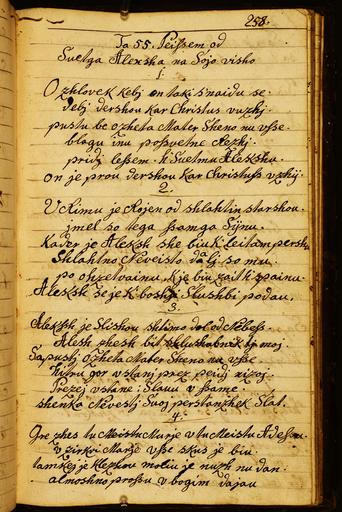 258.
Ta 55. Peissem od
Svetga Alexsha na Sojo visho
1.
O zhlovek kebj en taki s'naidu se.
debj dershou kar Christus vuzhj.
pustu be ozheta Mater Sheno nu vsse
blagu inu possvetne
pridj lessem k Svetmu Alekshu.
on je prou dershou kar Christuss vzhij.
2.
V Rimu je Rojen od shlahtin starshou.
jmel so tega ssamga Sijnu.
Kader je Aleksh she biu k leitam
Shlahtno Neveisto da lj so mu.
po ohzetvainu, kje biu zait k spainu.
Aleksh se je k boshj Slushbi podau.
3.
Aleksh je Slishou shtimo dol od Nebess.
Alesh zhesh bit Slushabnik bj moj
Sapustj Ozheta Mater Sheno nu vsse
Hitru gor vstanj prez peidj
Prezej vstane, Slavu v ssame.
shenko Nevestj Suoj perstanzhek Slat.
4.
Gre zhes tu Murje v tu Meistu Adessa.
v zirkvi Marje vsse skus je biu
tamkej je klezheou moliu je nuzh nu dan.
almoshno prossu v bogim dajau